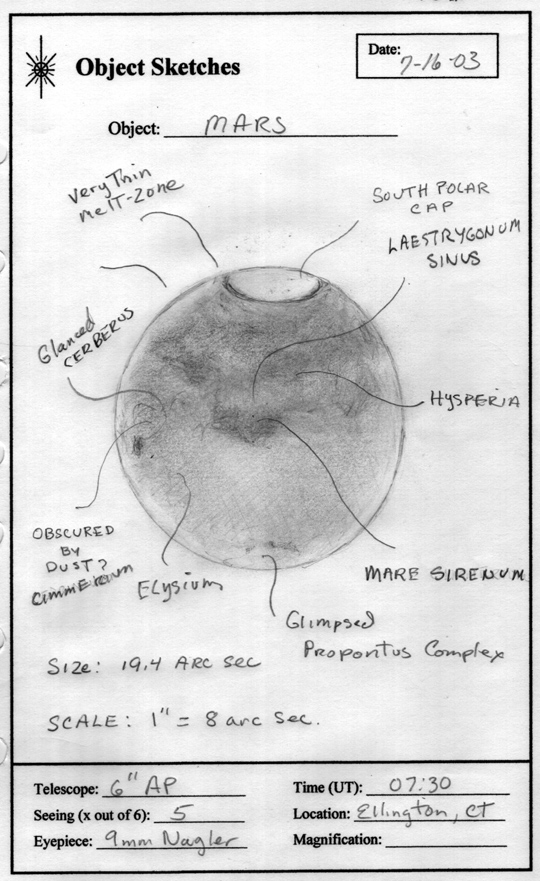 Object Sketches
Date: 7-16-03
Object: MARS
very Thin
melt-zone
SOUTH POLAR
CAP
LAESTRYGONUM
SINUS
Glanced
CERBERUS
HYSPERIA
OBSCURED
BY
DUST?
Cimmerium
Elysium
MARE SIRENUM
Glimpsed
Propontus Complex
Size: 19.4 ARC SEC
SCALE: 1" = 8 arc sec.
Telescope: 6" AP
Time (UT): 07:30
Seeing (x out of 6): 5
Location: Ellington, CT
Eyepiece: 9mm Nagler
Magnification: